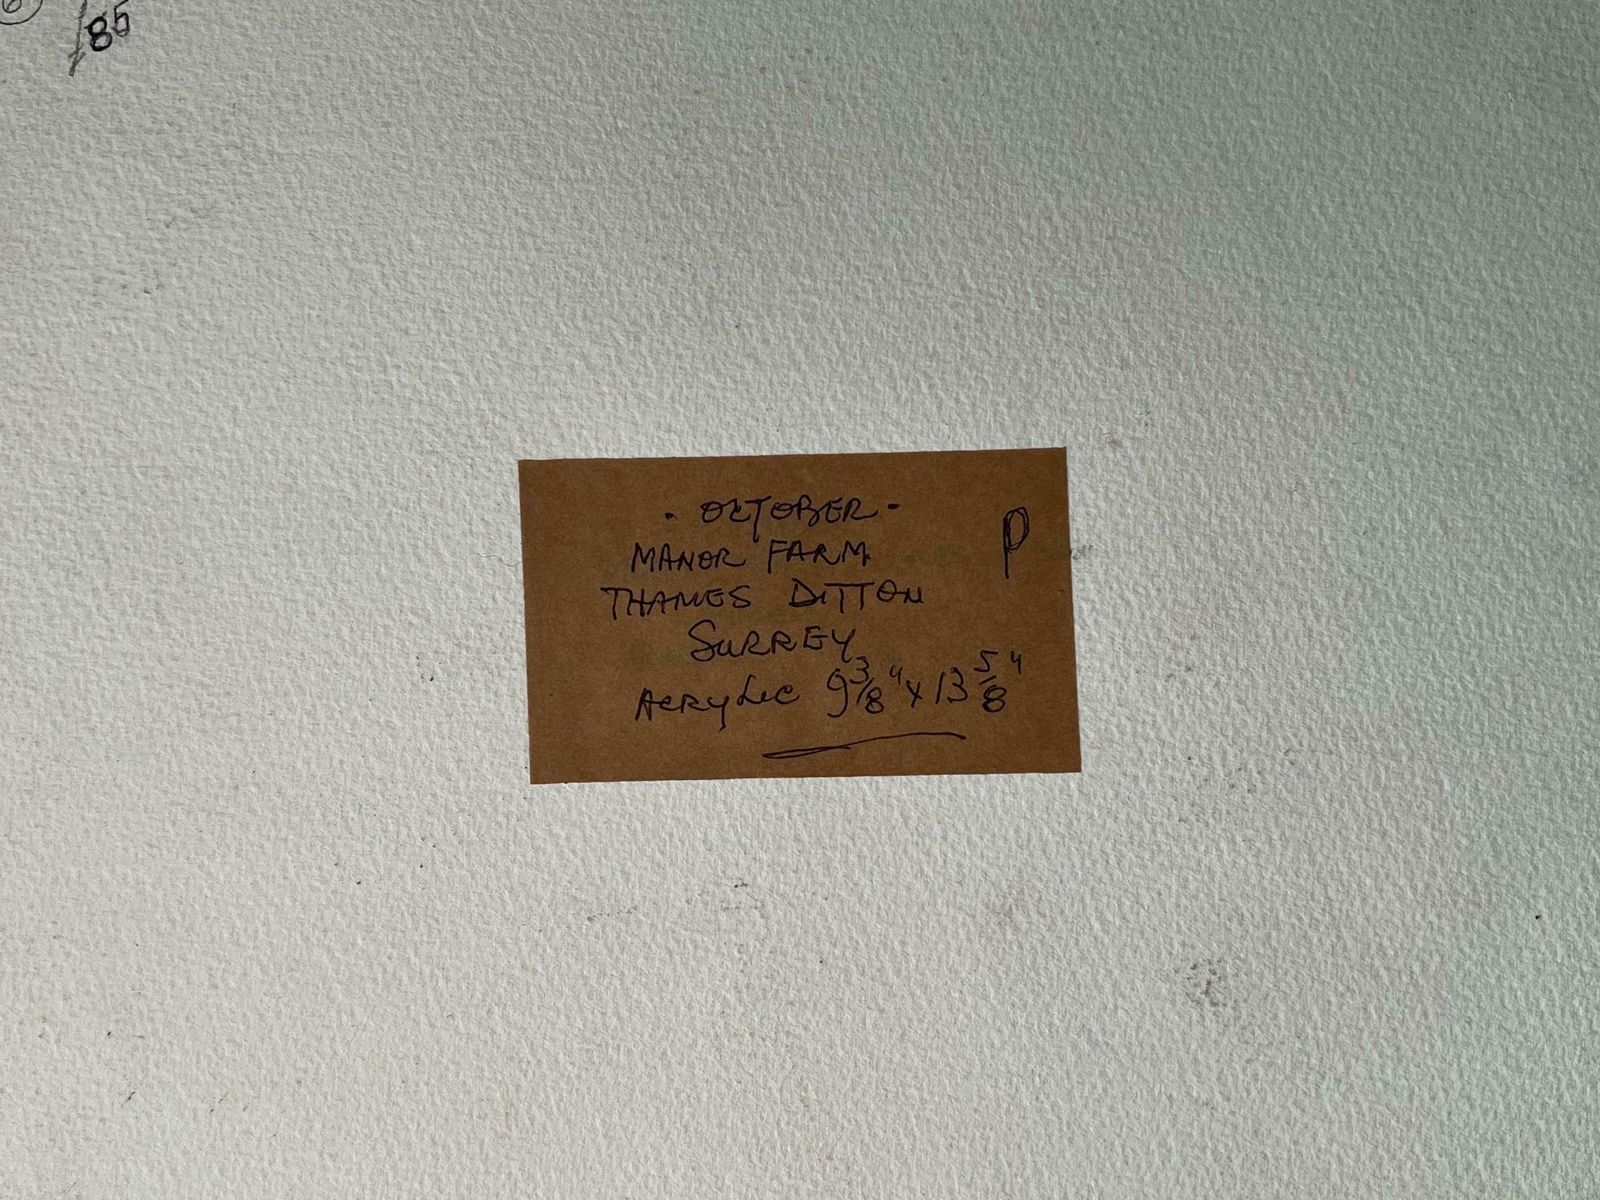 6
/85
- OCTOBER -
P
MANOR FARM
THAMES DITTON
SURREY
ACRYLIC 9 3/8" x 13 5/8"